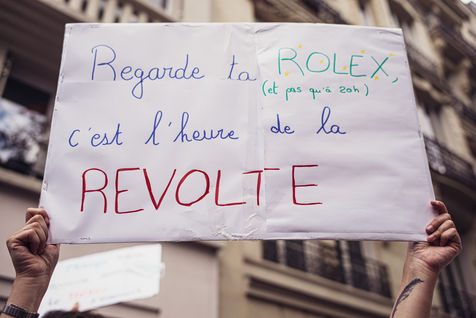 Regarde ta ROLEX,
(et pas qu'à 20h)
c'est l'heure de la
REVOLTE